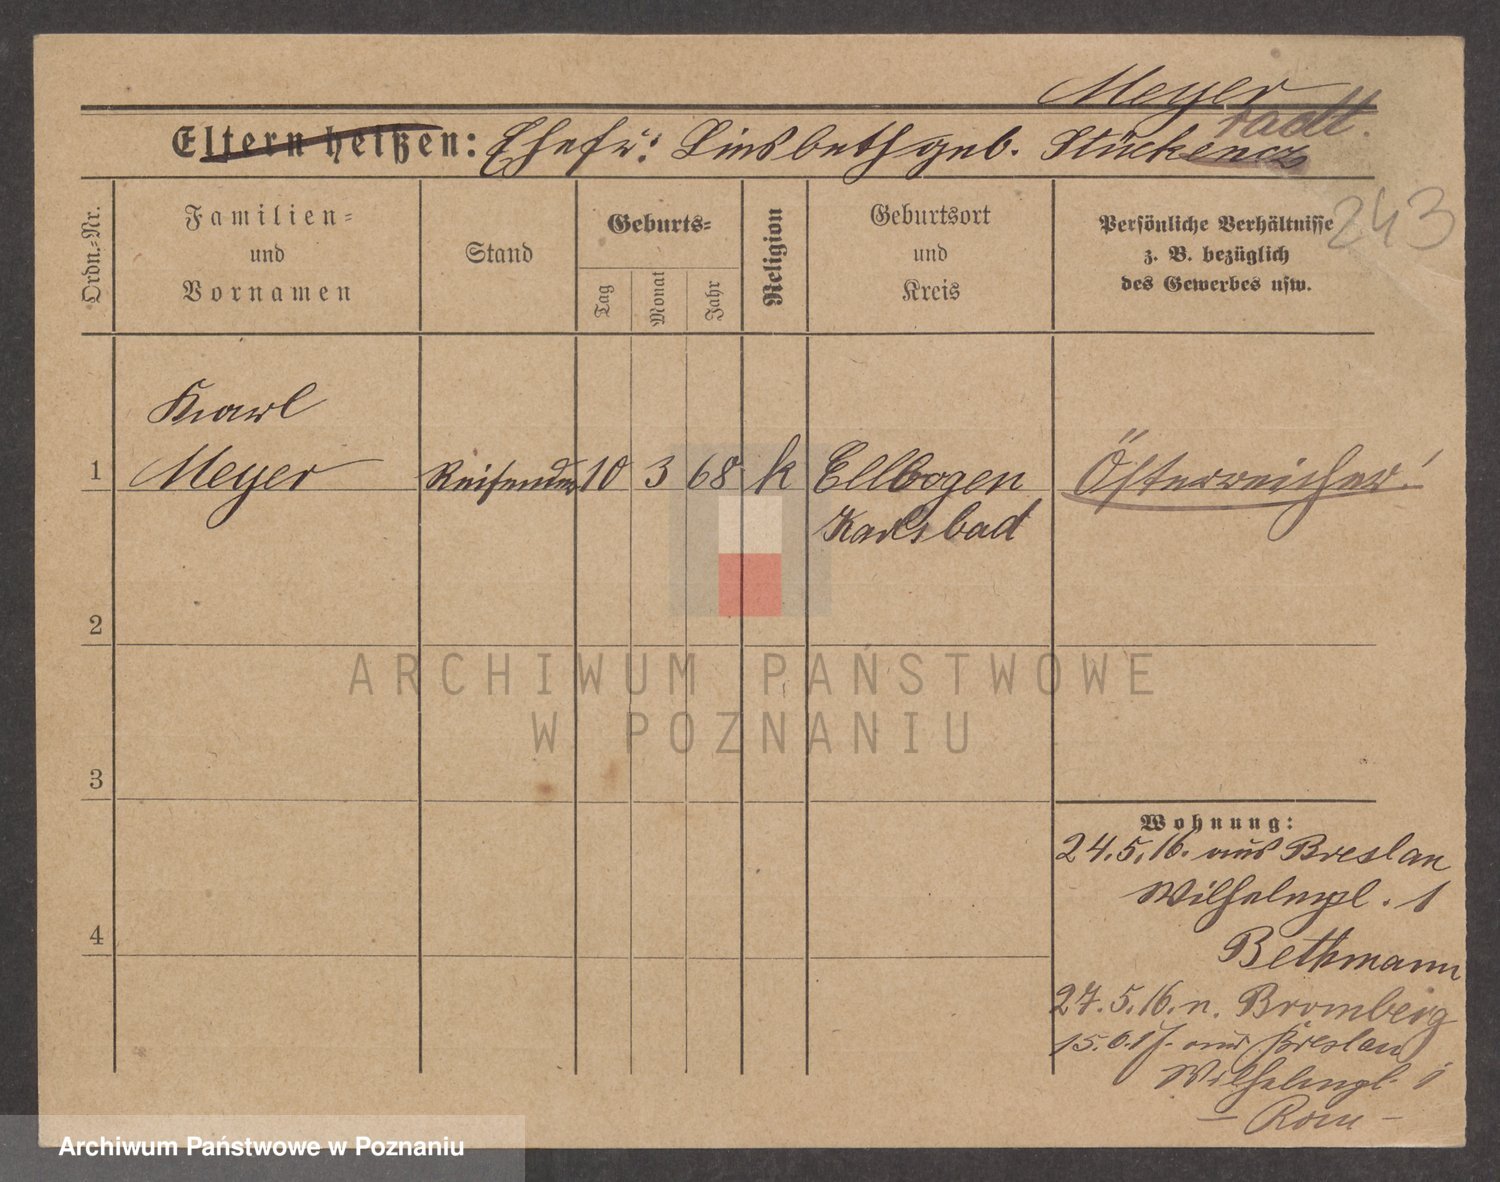 Meyer
Eltern heißen: Ehefr: Liesbeth geb. Stücken
radt.
243
Ordn.-Nr.
Familien-
und
Vornamen
Stand
Geburts-
Tag
Monat
Jahr
Religion
Geburtsort
und
Kreis
Persönliche Verhältnisse
z. B. bezüglich
des Gewerbes usw.
Karl
1 Meyer Reisender 10 3 68 k Ellbogen Österreicher!
Karlsbad
2
ARCHIWUM PAŃSTWOWE
W POZNANIU
3
Wohnung:
24.5.16. aus Breslau
Wilhelmpl. 1
4
Bethmann
27.5.16. n. Bromberg
15.6.17. aus Breslau
Wilhelmpl. 1
– Rom –
Archiwum Państwowe w Poznaniu